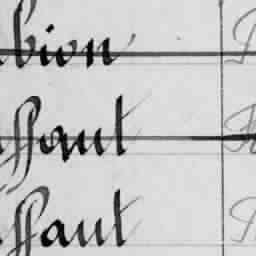 bion
ssaut
ssaut